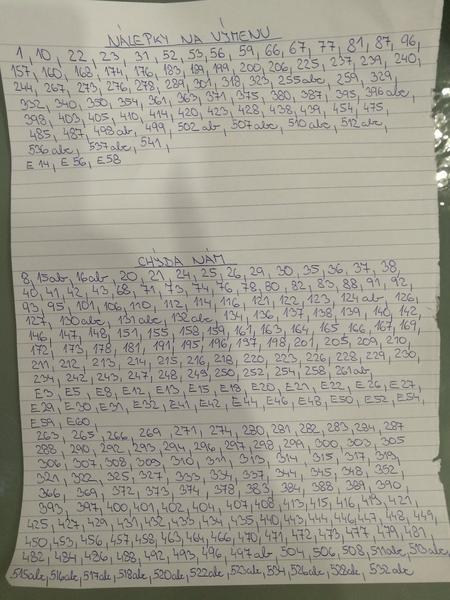 NÁLEPKY NA VÝMENU
1, 10, 22, 23, 31, 52, 53, 56, 59, 66, 67, 77, 81, 87, 96,
157, 160, 168, 174, 176, 183, 189, 199, 200, 206, 225, 237, 239, 240,
244, 267, 273, 276, 278, 289, 301, 318, 323, 255abc, 259, 329,
332, 340, 350, 354, 361, 363, 371, 375, 380, 387, 395, 396abc,
398, 403, 405, 410, 414, 420, 423, 428, 438, 439, 454, 475,
485, 487, 498ab, 499, 502ab, 507abc, 510abc, 512abc,
536abc, 537abc, 541,
E14, E56, E58
CHÝBA NÁM
8, 15ab, 16ab, 20, 21, 24, 25, 26, 29, 30, 35, 36, 37, 38,
40, 41, 42, 43, 68, 71, 73, 74, 76, 78, 80, 82, 83, 88, 91, 92,
93, 95, 101, 106, 110, 112, 114, 116, 121, 122, 123, 124ab, 126,
127, 130abc, 131abc, 132abc, 134, 136, 137, 138, 139, 140, 142,
146, 147, 148, 151, 155, 158, 159, 161, 163, 164, 165, 166, 167, 169,
172, 173, 178, 181, 191, 195, 196, 197, 198, 201, 205, 209, 210,
211, 212, 213, 214, 215, 216, 218, 220, 223, 226, 228, 229, 230,
234, 242, 243, 247, 248, 249, 250, 252, 254, 258, 261ab,
E3, E5, E8, E12, E13, E15, E18, E20, E21, E22, E26, E27,
E29, E30, E31, E32, E41, E42, E44, E46, E48, E50, E52, E54,
E59, E60,
263, 265, 266, 269, 271, 274, 280, 281, 282, 283, 284, 287
288, 290, 292, 293, 294, 296, 297, 298, 299, 300, 303, 305
306, 307, 308, 309, 310, 311, 313, 314, 315, 317, 319,
321, 322, 325, 327, 333, 334, 337, 344, 345, 348, 352,
366, 369, 372, 373, 374, 378, 383, 384, 388, 389, 390,
393, 397, 400, 401, 402, 404, 407, 408, 413, 415, 416, 419, 421,
425, 427, 429, 431, 432, 433, 434, 435, 440, 443, 444, 446, 447, 448, 449,
450, 453, 456, 457, 458, 463, 464, 466, 470, 471, 472, 473, 477, 479, 481,
482, 484, 486, 488, 492, 493, 496, 497ab, 504, 506, 508, 511abc, 513abc,
515abc, 516abc, 517abc, 518abc, 520abc, 522abc, 523abc, 534, 526abc, 528abc, 532abc